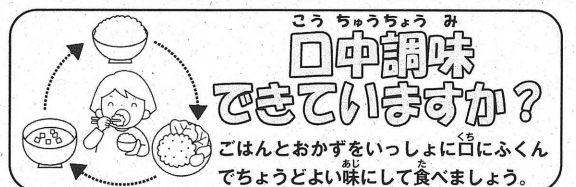 こう ちゅうちょう み
口中調味
できていますか？
くち
ごはんとおかずをいっしょに口にふくん
あじ た
でちょうどよい味にして食べましょう。